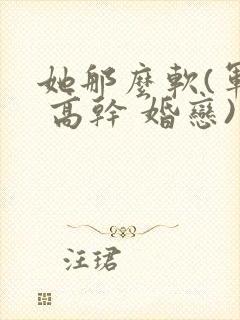 她那麼軟(軍
高幹 婚戀)
汪珺